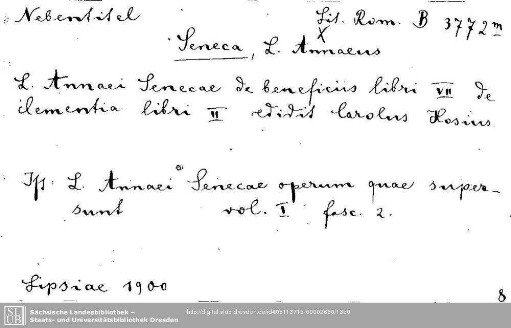 Nebentitel
Lit. Rom. B 3772 m
X
Seneca, L. Annaeus
L. Annaei Senecae de beneficiis libri VII de
clementia libri II edidit Carolus Hosius
L. Annaei Senecae operum quae super-
sunt vol. I fasc. 2.
Lipsiae 1900
8
SLUB
Sächsische Landesbibliothek –
Staats- und Universitätsbibliothek Dresden